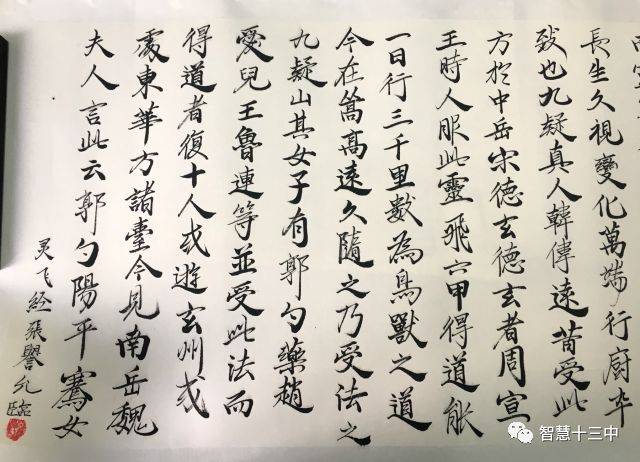 長生久視變化萬端行廚卒
致也九疑真人韓偉遠昔受此
方於中岳宋德玄德玄者周宣
王時人服此靈飛六甲得道能
一日行三千里数為鳥獸之道
今在嵩高遠久隨之乃受法之
九疑山其女子有郭勺藥趙
愛兒王魯連等並受此法而
得道者復十人或遊玄州或
處東華方諸臺今見南岳魏
夫人言此云郭勺陽平騫女
灵飞经張譽允臨
智慧十三中